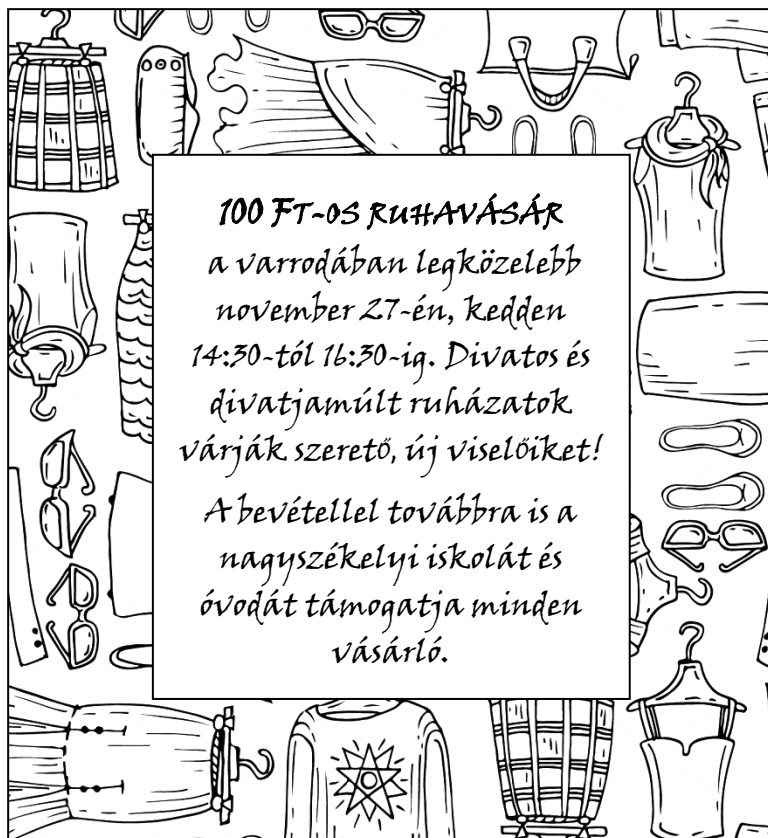 100 FT-OS RUHAVÁSÁR
a varrodában legközelebb
november 27-én, kedden
14:30-tól 16:30-ig. Divatos és
divatjamúlt ruházatok
várják szerető, új viselőiket!
A bevétellel továbbra is a
nagyszékelyi iskolát és
óvodát támogatja minden
vásárló.